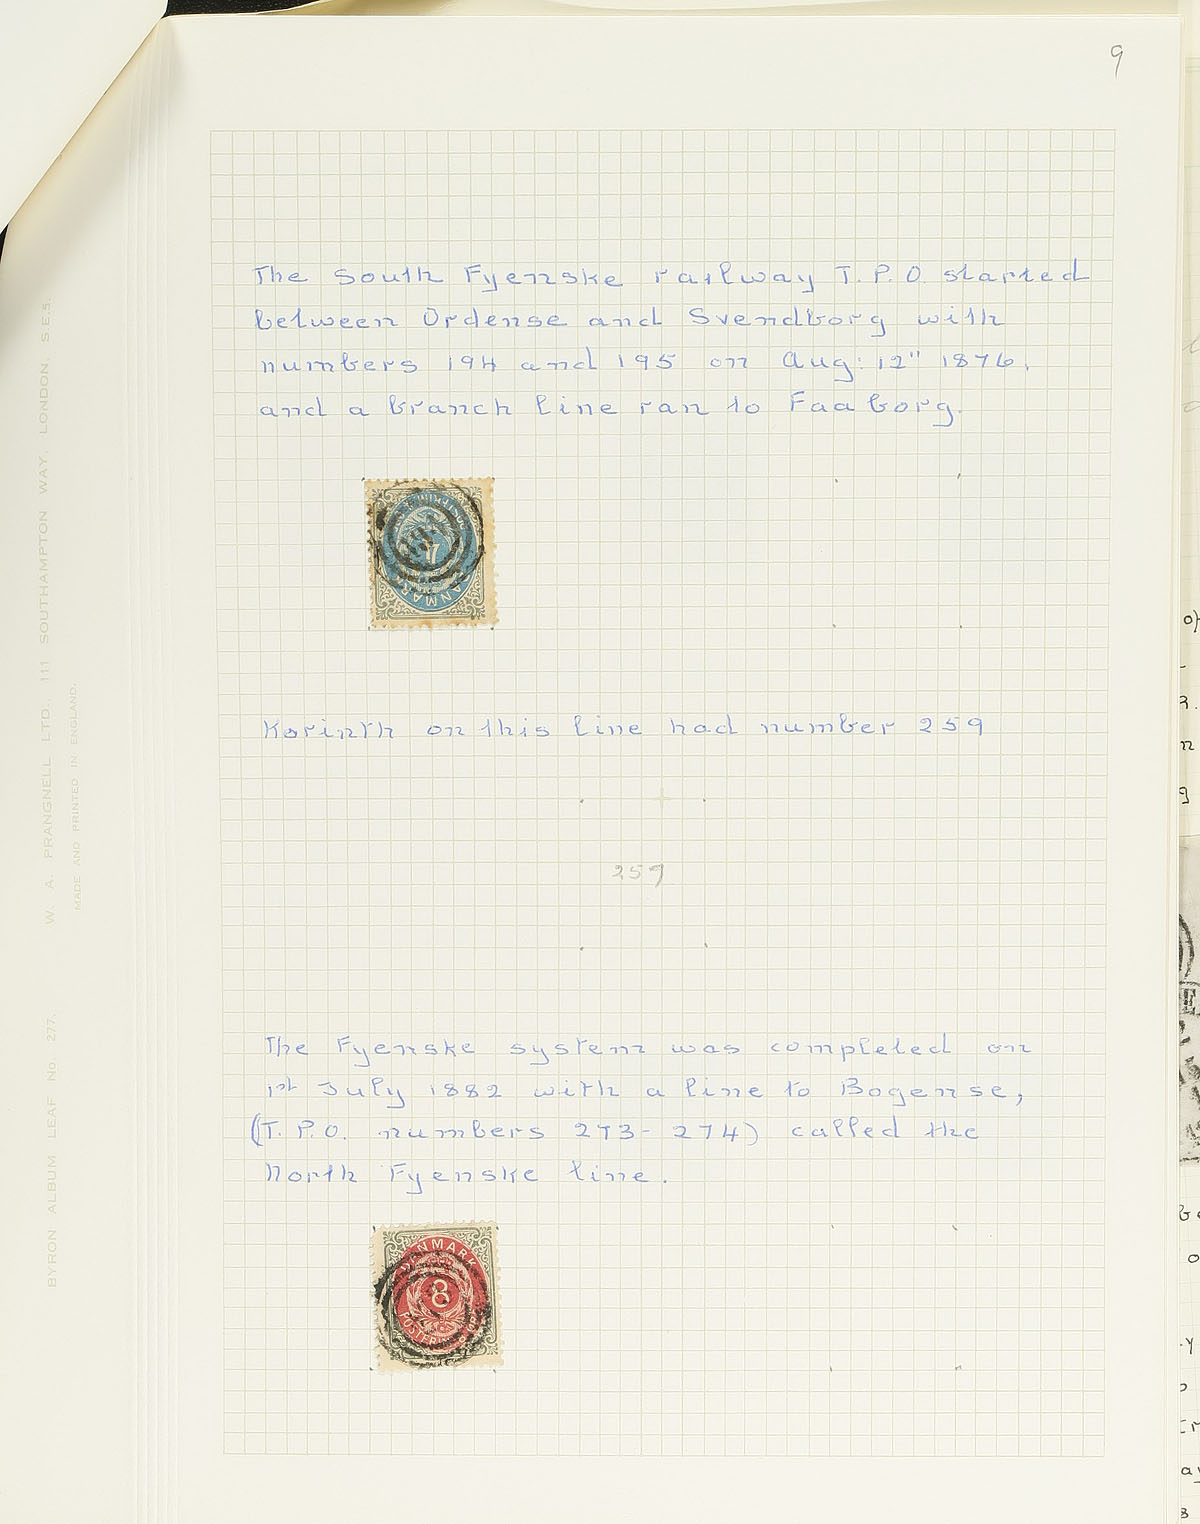 9
The South Fyenske railway T.P.O. started
between Ordense and Svendborg with
numbers 194 and 195 on Aug: 12" 1876,
and a branch line ran to Faaborg.
Korinth on this line had number 259
259
The Fyenske system was completed on
1st July 1882 with a line to Bogense,
(T.P.O. numbers 273-274) called the
North Fyenske line.
DANMARK
8
W. A. PRANGNELL LTD., 111 SOUTHAMPTON WAY, LONDON, S.E.5.
MADE AND PRINTED IN ENGLAND.
BYRON ALBUM LEAF No 277.